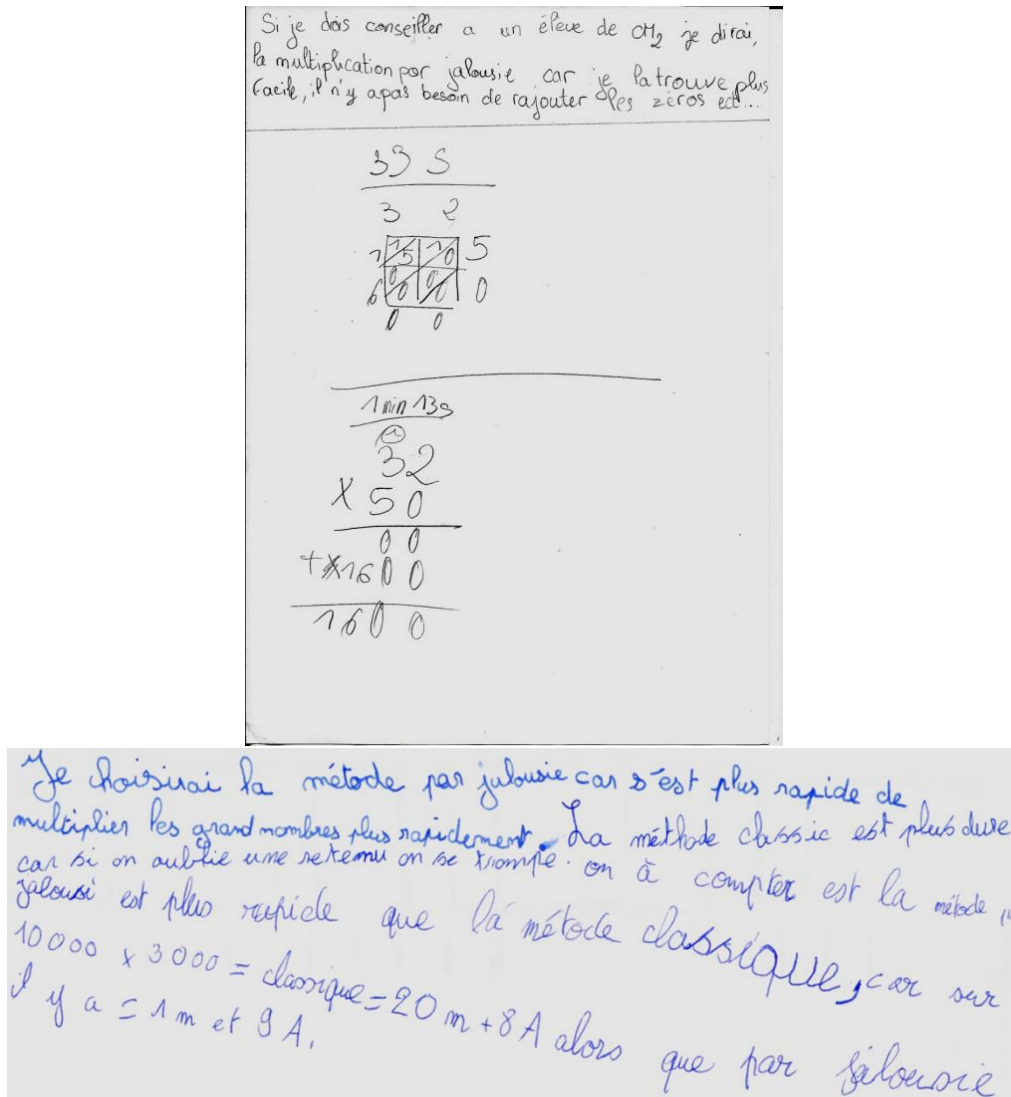 Si je dois conseiller a un élève de CM2 je dirai,
la multiplication par jalousie car je la trouve plus
facile, il n'y a pas besoin de rajouter les zéros ect...
33 S
3 2
1 1 5 1 0 5
6 0 0 0 0 0
0 0
1 min 13s
1
32
X 50
00
+ 1600
1600
Je choisirai la métode par jalousie car s'est plus rapide de
multiplier les grand nombres plus rapidement. La méthode classic est plus dure
car si on oublie une retenu on se trompe. on à compter est la métode
jalousi est plus rapide que la métode classique, car sur
10000 x 3000 = classique = 20 m + 8 A alors que par jalousie
il y a = 1 m et 9 A.